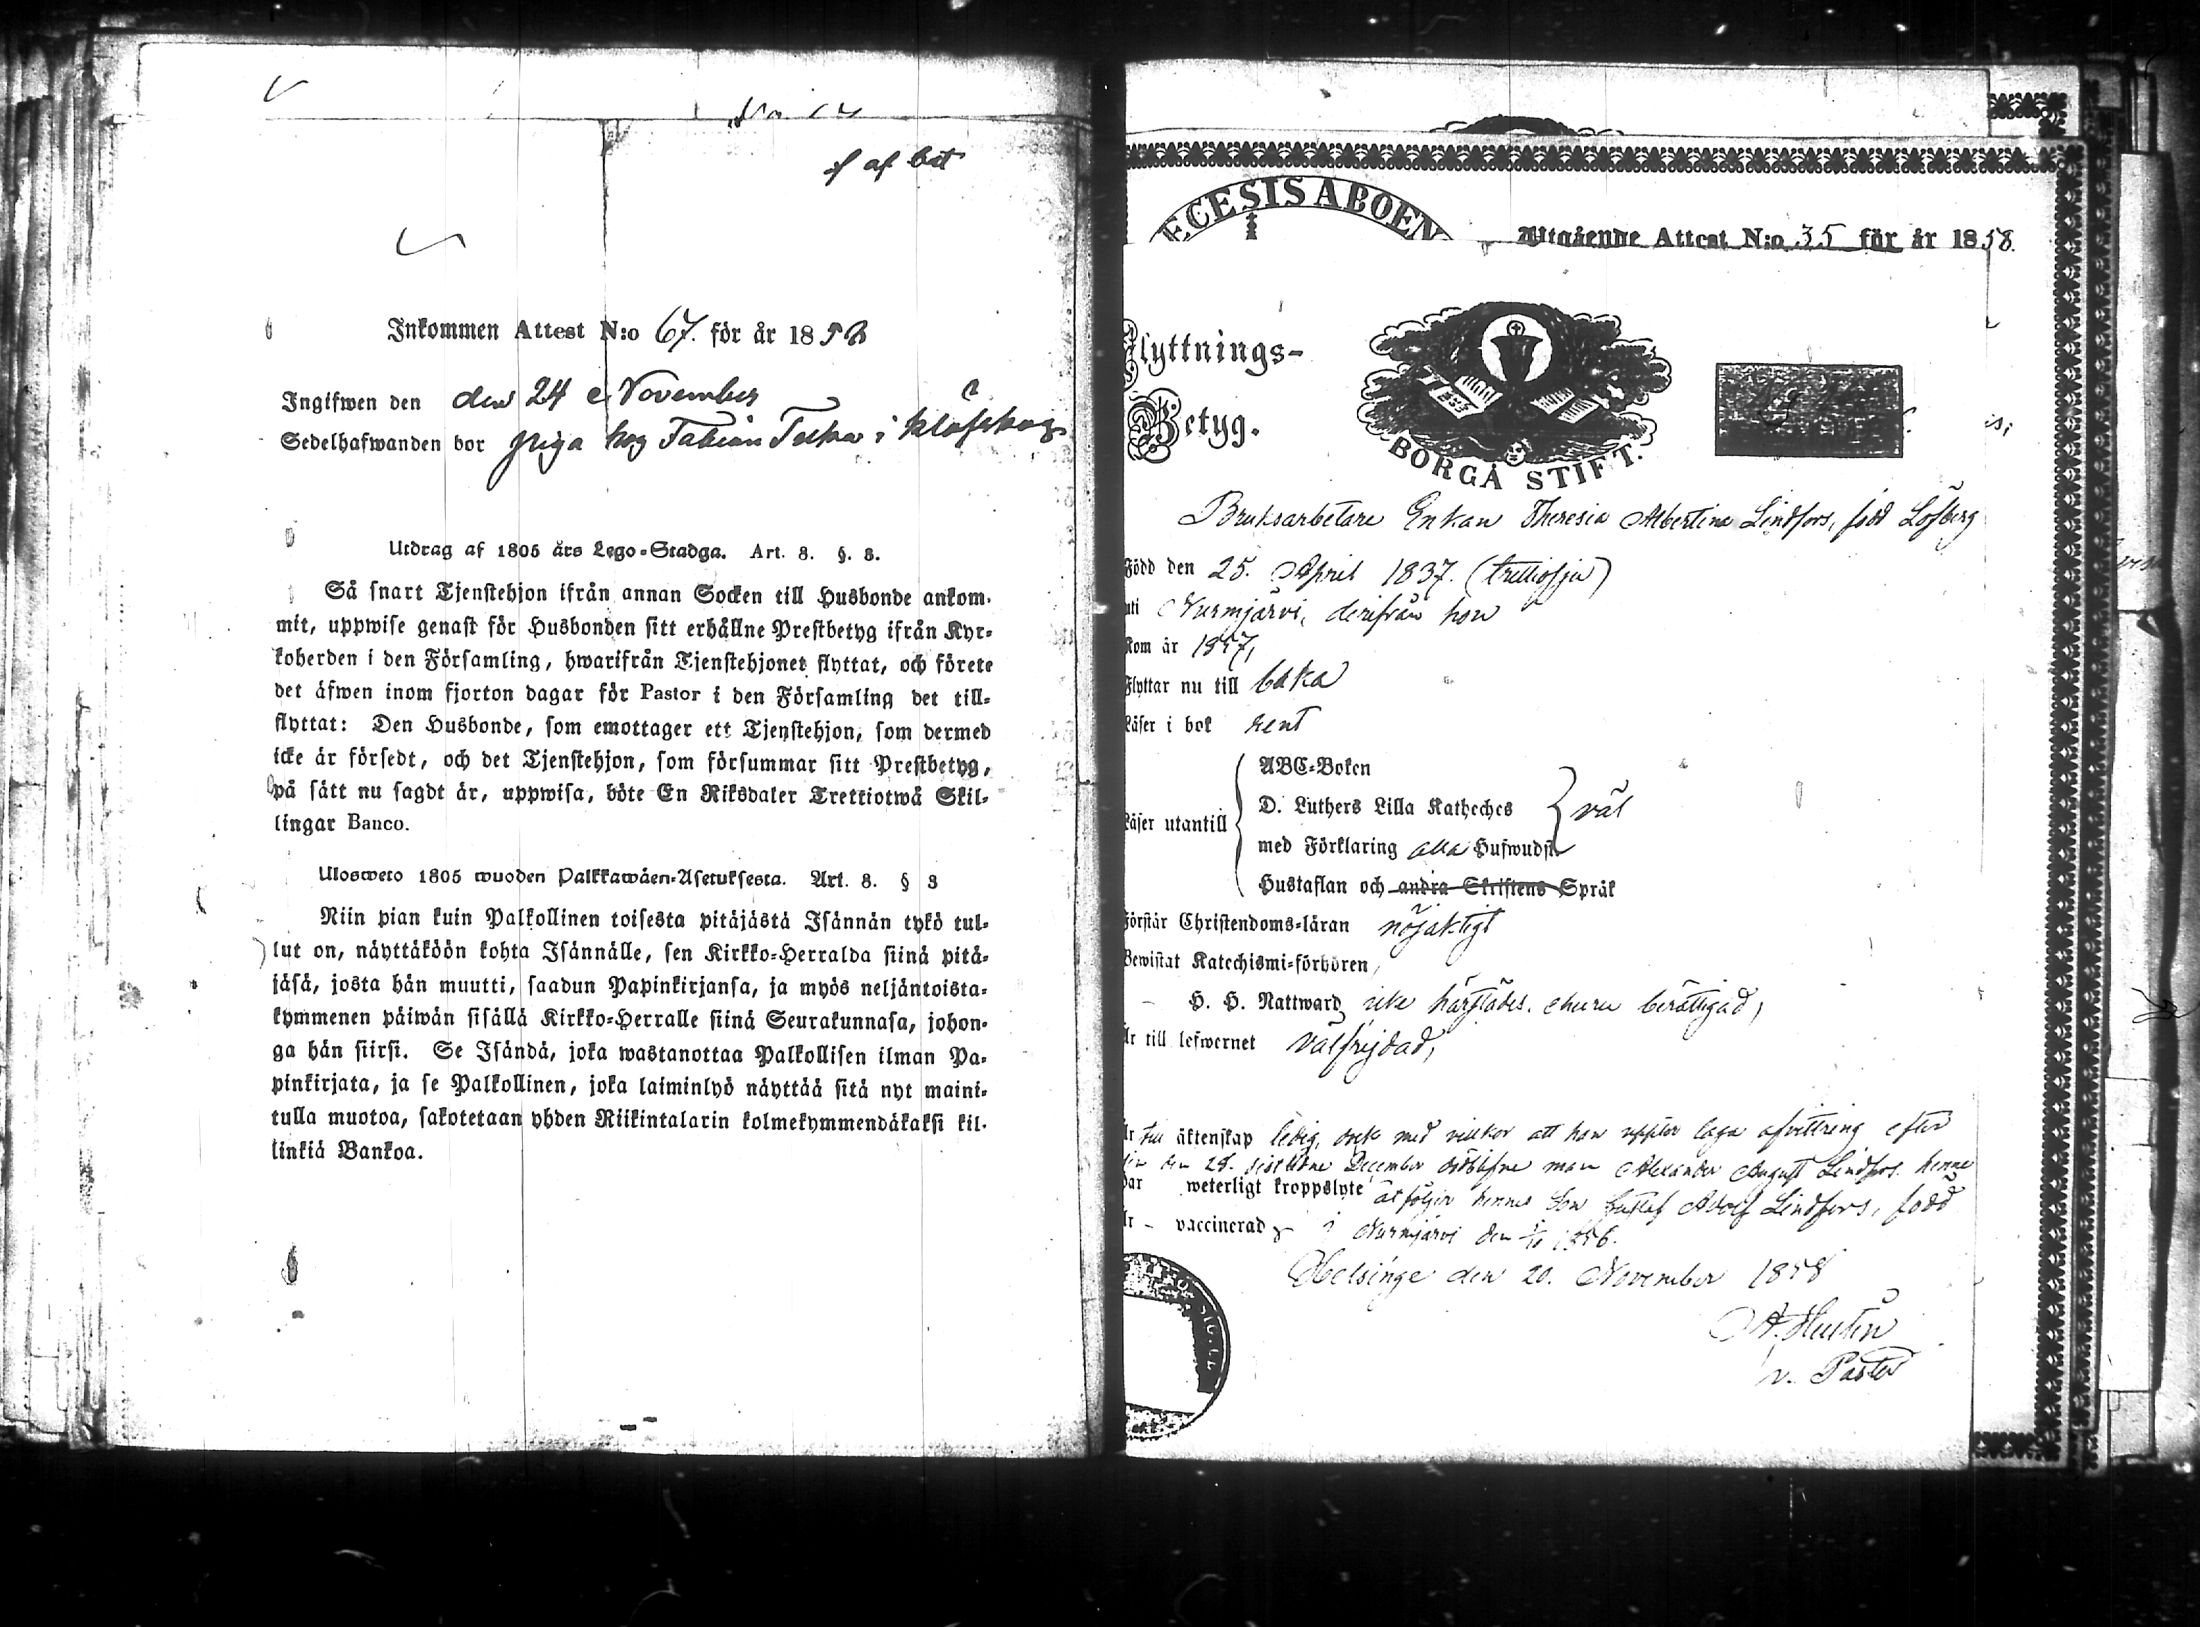 f af bet
Inkommen Attest N:o 67. för år 1858
Ingifwen den den 24 November
Sedelhafwanden bor piga hos Fabian Tuka i Klöfskog
Utdrag af 1805 års Lego-Stadga. Art. 8. §. 8.
Så snart Tjenstehjon ifrån annan Socken till Husbonde ankom-
mit, uppwise genast för Husbonden sitt erhållne Prestbetyg ifrån Kyr-
koherden i den Församling, hwarifrån Tjenstehjonet flyttat, och förete
det äfwen inom fjorton dagar för Pastor i den Församling det till-
flyttat: Den Husbonde, som emottager ett Tjenstehjon, som dermed
icke är försedt, och det Tjenstehjon, som försummar sitt Prestbetyg,
på sätt nu sagdt är, uppwisa, böte En Riksdaler Trettiotwå Skil-
lingar Banco.
Ulosweto 1805 wuoden Palkkawäen-Asetuksesta. Art. 8. § 8
Niin pian kuin Palkollinen toisesta pitäjästä Isännän tykö tul-
lut on, näyttäköön kohta Isännälle, sen Kirkko-Herralda siinä pitä-
jäsä, josta hän muutti, saadun Papinkirjansa, ja myös neljäntoista-
kymmenen päiwän sisällä Kirkko-Herralle siinä Seurakunnasa, johon-
ga hän siirsi. Se Isändä, joka wastanottaa Palkollisen ilman Pa-
pinkirjata, ja se Palkollinen, joka laiminlyö näyttää sitä nyt maini-
tulla muotoa, sakotetaan yhden Riikintalarin kolmekymmendäkaksi kil-
linkiä Bankoa.
ECESIS ABOEN
Utgående Attest N:o 35 för år 1858.
Flyttnings-
Betyg.
BORGÅ STIFT.
Bruksarbetare Enkan Theresia Albertina Lindfors, född Löfberg
Född den 25. April 1837. (trettiosju)
uti Nurmjärvi, derifrån hon
kom år 1857,
Flyttar nu till baka
Läser i bok rent
Läser utantill
ABC-Boken
D. Luthers Lilla Katheches
med Förklaring alla Hufwudst.
väl
Hustaflan och andra Skriftens Språk
Förstår Christendoms-läran nöjaktigt
Bewistat Katechismi-förhören,
H. H. Nattward, icke härstädes.
berättigad,
Är till lefwernet välfrejdad,
Är till äktenskap ledig, dock med vilkor att hon uppter laga afvittring efter
sin den 28. sistlidne December aflidne man Alexander August Lindfors. henne
har weterligt kroppslyte åtföljer hennes Son Gustaf Adolf Lindfors, född
Är - vaccinerad i Nurmjärvi den
1856.
Helsinge den 20. November 1858
v. Pastor